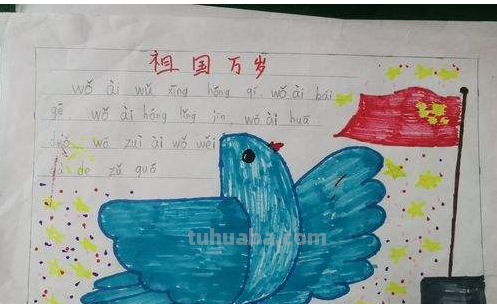 祖国万岁
wǒ ài wǔ xīng hóng qí wǒ ài bái
gē wǒ ài hóng lǐng jīn wǒ ài huā
duǒ wǒ zuì ài wǒ wěi
dà de zǔ guó
tuhuaba.com